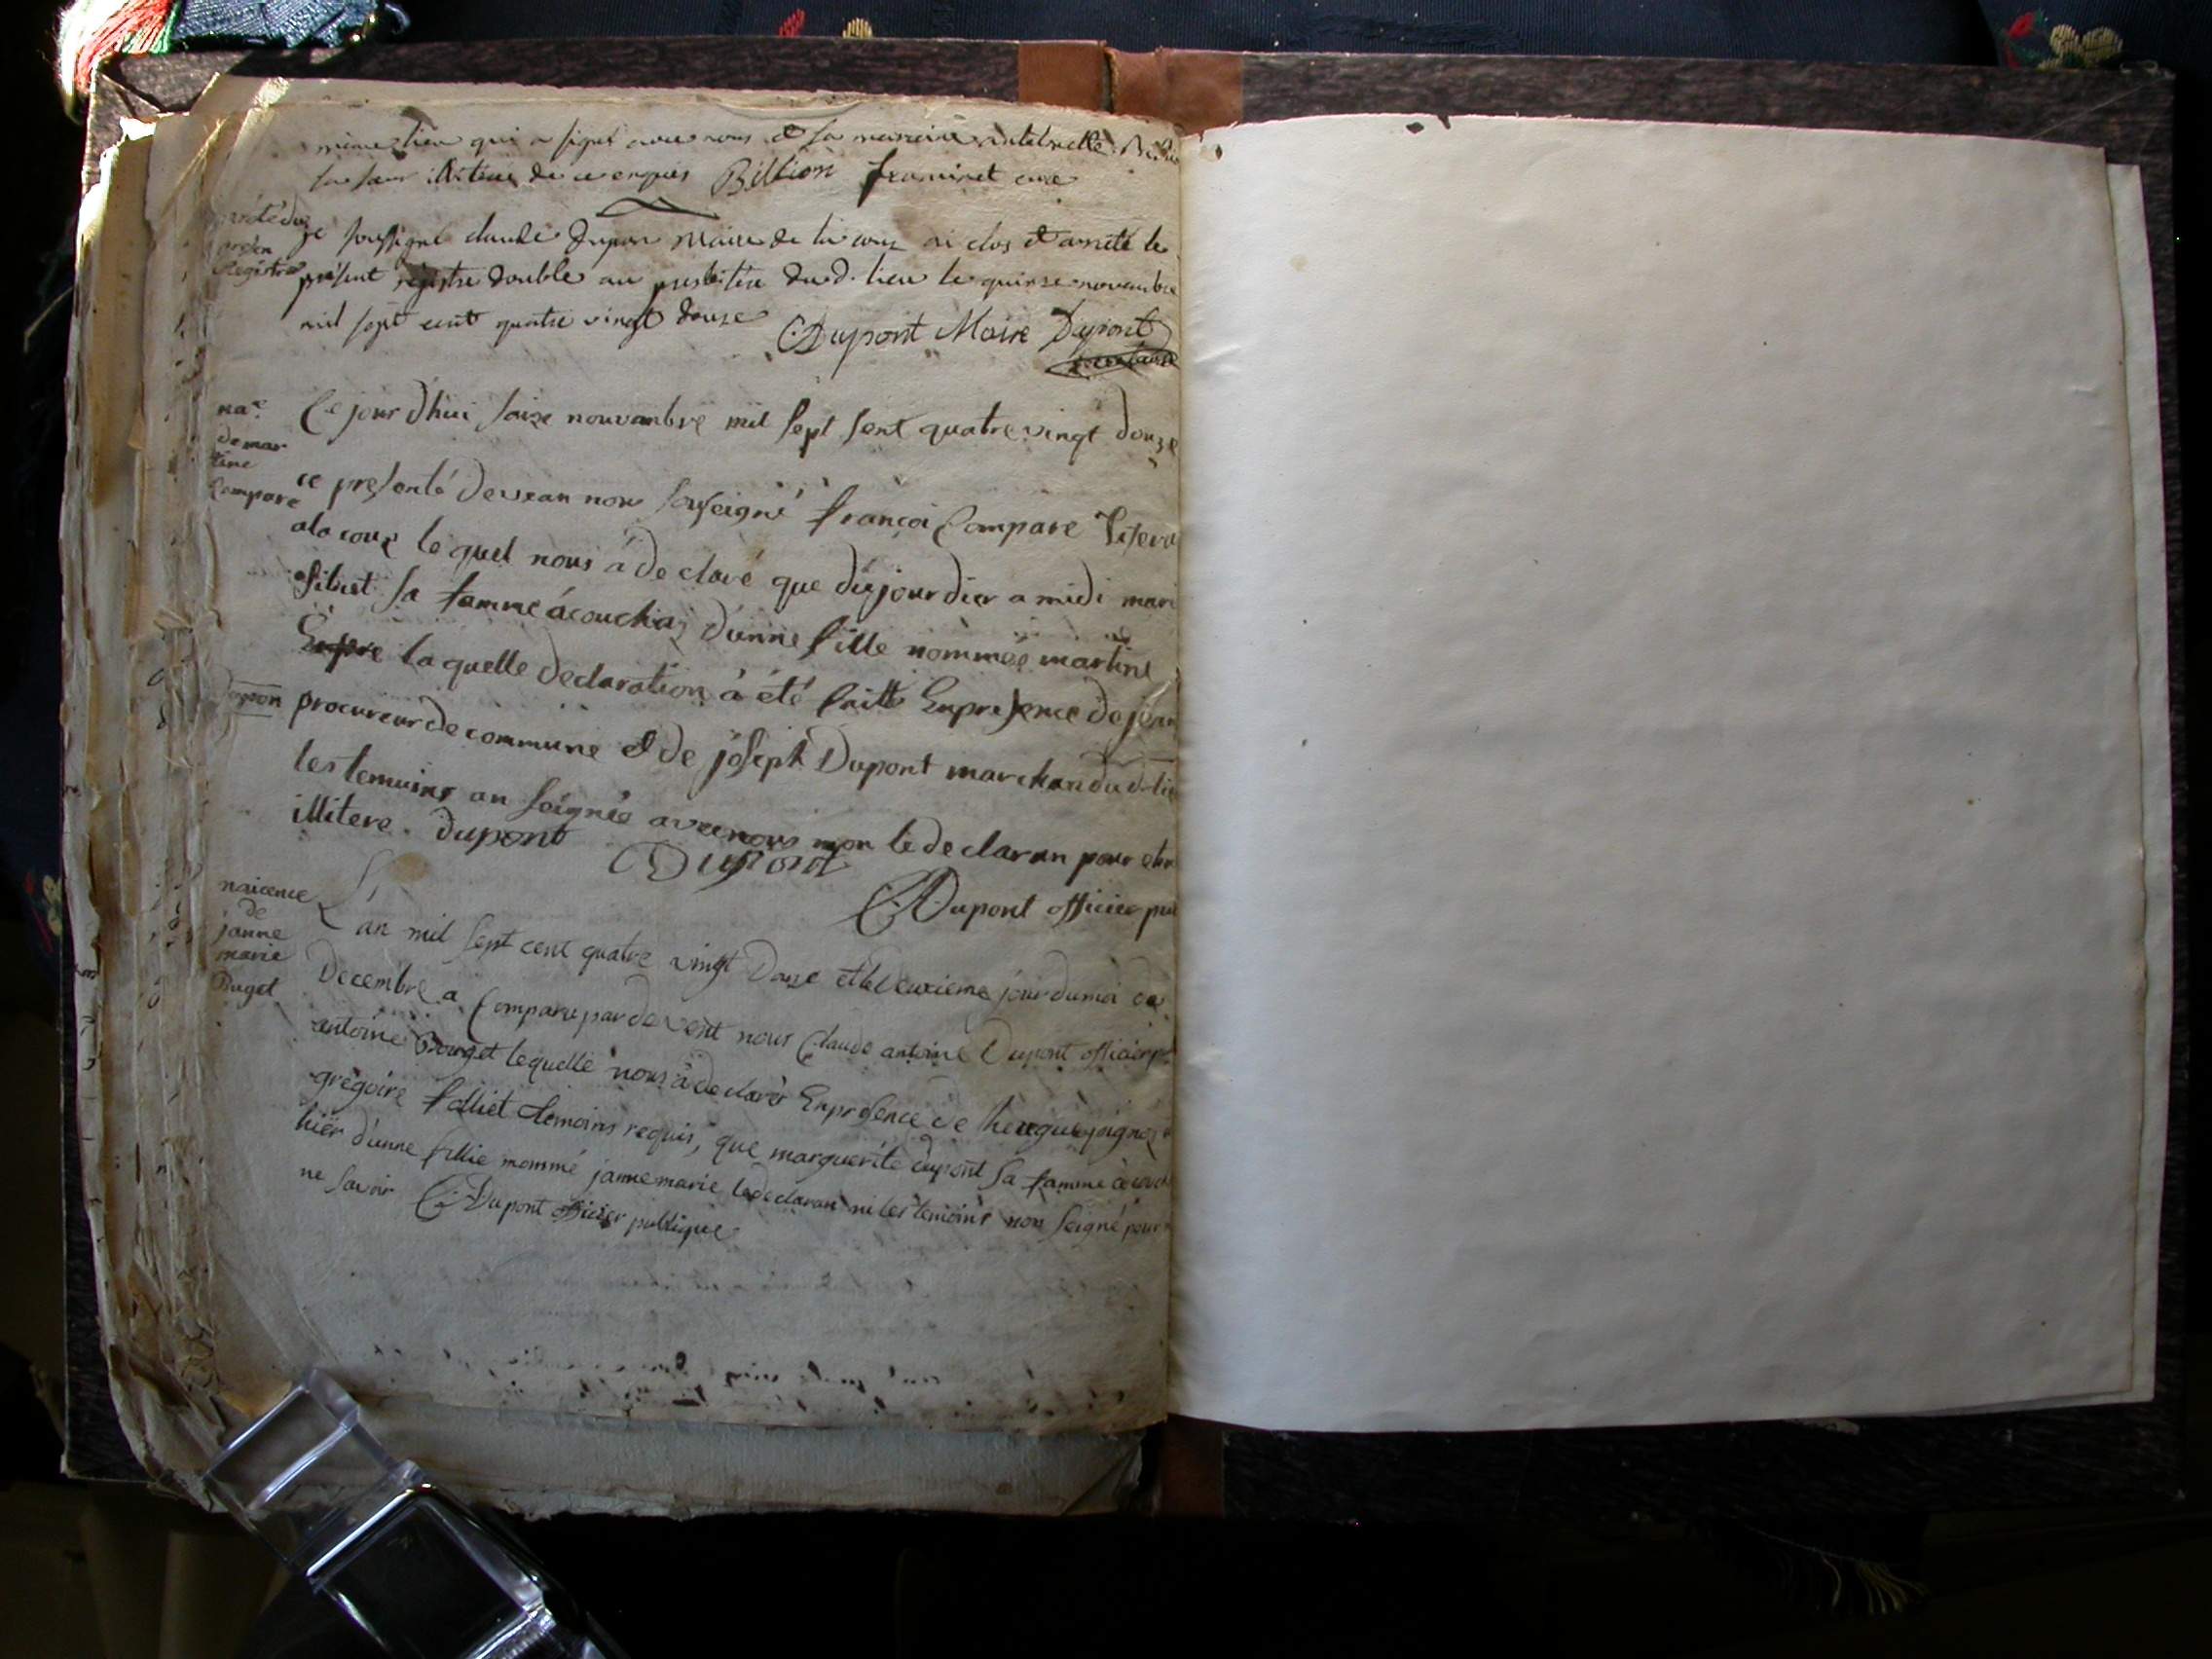 même lieu qui a signé avec nous et sa marraine
Billion Framinet curé
arrêté du
registre
je soussigné claude dupon Maire de la cour ai clos et arrêté le
présent registre double au presbitère dud. lieu le quinse novembre
mil sept cent quatre vingt douze
C: Dupont Maire Dupont
secretaire
nace
de mar
tine
Compare
Ce jour dhui saize nouvambre mil sept sent quatre vingt douze
ce presenté devean nou souseigné françoi Compare
ala cour le quel nous à de claré que du jour dier a midi mari
filiet sa famme àcouchaz dunne fille nommée martine
la quelle declaration à été faitte Enpresence de jean
Dupon procureur de commune et de joseph Dupont marchan du d. lie
les temuins an soignée avec nous non le declaran pour etre
illitere. dupont
Dupont
C: Dupont officier pu
naicence
de
janne
marie
Buget
L'an mil sept cent quatre vingt douze et le deuxieme jour du moi de
Decembre a Comparu par devent nous Claude antoine Dupont officier p
antoine Bouget lequelle nous à de claré Enpresence de
gregoire folliet temoins requis, que marguerite dupont sa famme à couch
hier d'unne fillie nommé janne marie le declaran ni les temoins non soigné pour
ne savoir C: Dupont officier publique